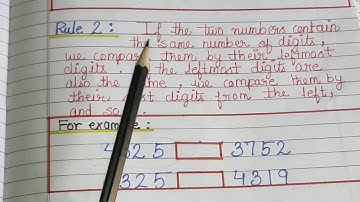 Rule 2: If the two numbers contain
the same number of digits,
we compare them by their leftmost
digits. the leftmost digits are
also the same, we compare them by
their digits from the left,
and so
For example:
4 25 3752
325 4319